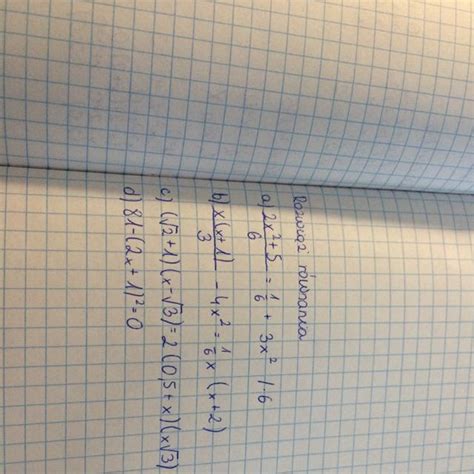 Rozwiąż równania
a) (2x²+5)/6 = 1/6 + 3x² /·6
b) x(x+1)/3 - 4x² = 1/6 x (x+2)
c) (√2+1)(x-√3) = 2(0,5+x)(x√3)
d) 81-(2x+1)²=0